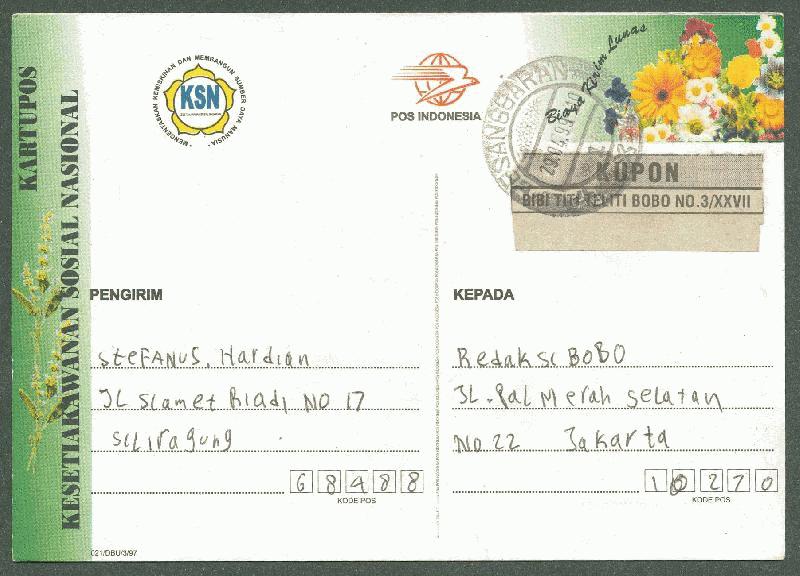 KARTUPOS
KESETIAKAWANAN SOSIAL NASIONAL
MENGENTASKAN KEMISKINAN DAN MEMBANGUN SUMBER DAYA MANUSIA
KSN
POS INDONESIA
Biaya Kirim Lunas
KUPON
BIBI TITI TELITI BOBO NO.3/XXVII
PENGIRIM
STEFANUS. Hardian
JL Slamet Riadi NO 17
SiLiragung
68488
KODE POS
KEPADA
Redaksi BOBO
JL. Pal Merah selatan
No.22 Jakarta
10270
KODE POS
021/DBU/3/97